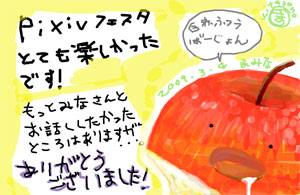 pixivフェスタ
とても楽しかった
です!
もっとみなさんと
お話ししたかった
ところはありますが・・・
ありがとう
ございました!
われふつう
ばーじょん
2009.3.4